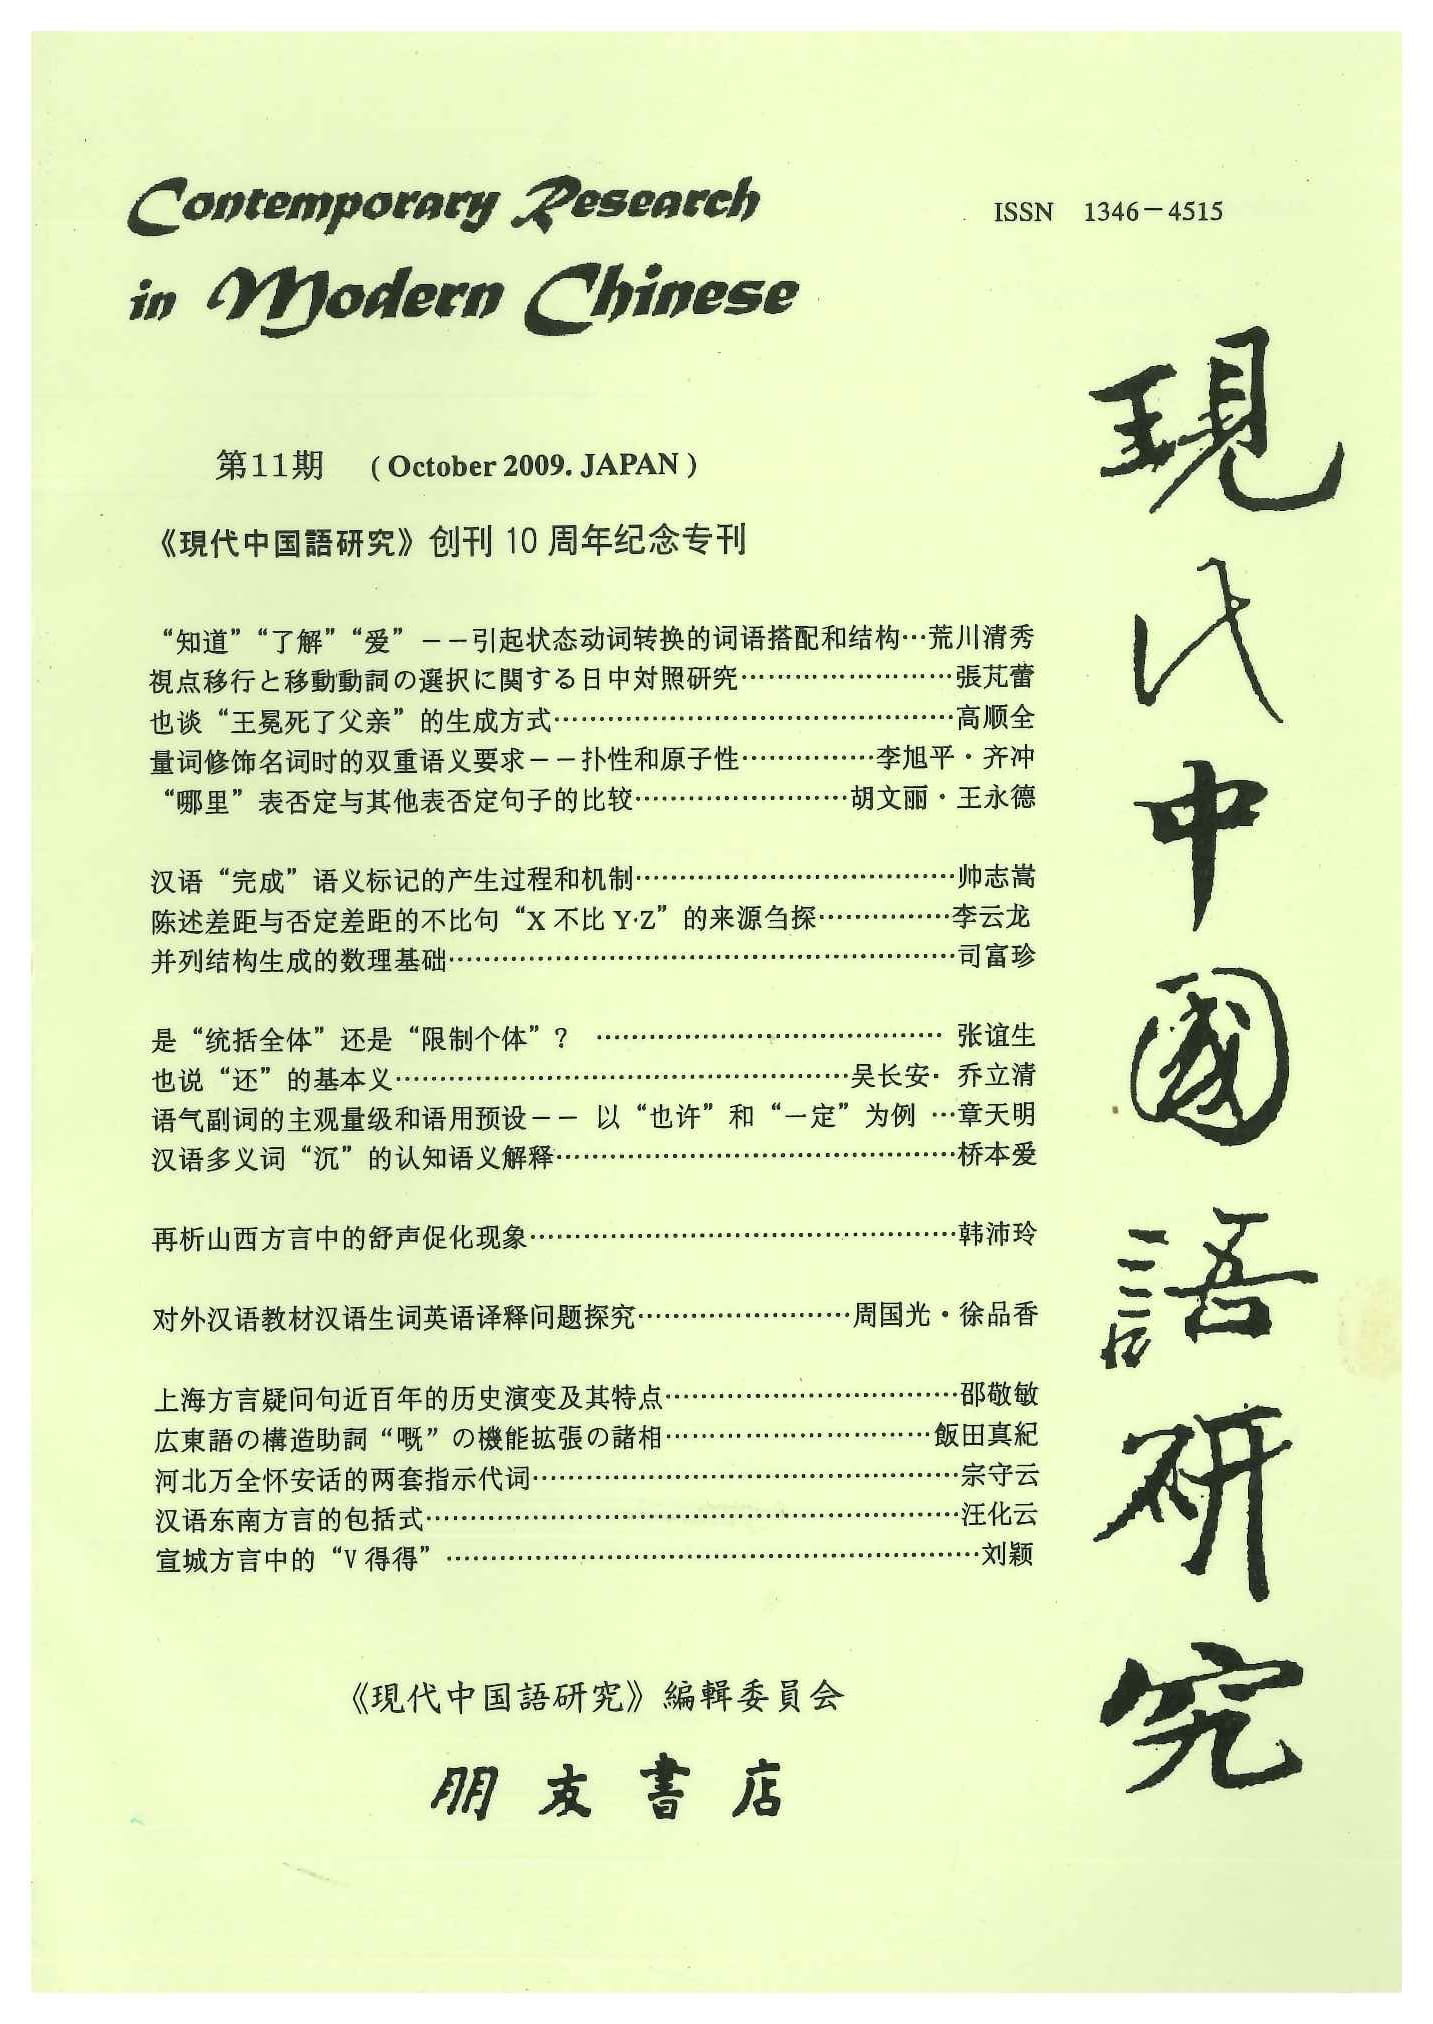 Contemporary Research
in Modern Chinese
ISSN 1346-4515
現代中國語研究
第11期 (October 2009. JAPAN)
《現代中国語研究》创刊 10 周年纪念专刊
“知道”“了解”“爱”--引起状态动词转换的词语搭配和结构…荒川清秀
視点移行と移動動詞の選択に関する日中対照研究……………………張芃蕾
也谈“王冕死了父亲”的生成方式………………………………………高顺全
量词修饰名词时的双重语义要求--扑性和原子性……………李旭平·齐冲
“哪里”表否定与其他表否定句子的比较……………………胡文丽·王永德
汉语“完成”语义标记的产生过程和机制………………………………帅志嵩
陈述差距与否定差距的不比句“X 不比 Y·Z”的来源刍探……………李云龙
并列结构生成的数理基础…………………………………………………司富珍
是“统括全体”还是“限制个体”? ………………………………… 张谊生
也说“还”的基本义……………………………………………吴长安· 乔立清
语气副词的主观量级和语用预设-- 以“也许”和“一定”为例 …章天明
汉语多义词“沉”的认知语义解释………………………………………桥本爱
再析山西方言中的舒声促化现象…………………………………………韩沛玲
对外汉语教材汉语生词英语译释问题探究……………………周国光·徐品香
上海方言疑问句近百年的历史演变及其特点……………………………邵敬敏
広東語の構造助詞“嘅”の機能拡張の諸相…………………………飯田真紀
河北万全怀安话的两套指示代词…………………………………………宗守云
汉语东南方言的包括式……………………………………………………汪化云
宣城方言中的“V 得得” ……………………………………………………刘颖
《現代中国語研究》編輯委員会
朋友書店